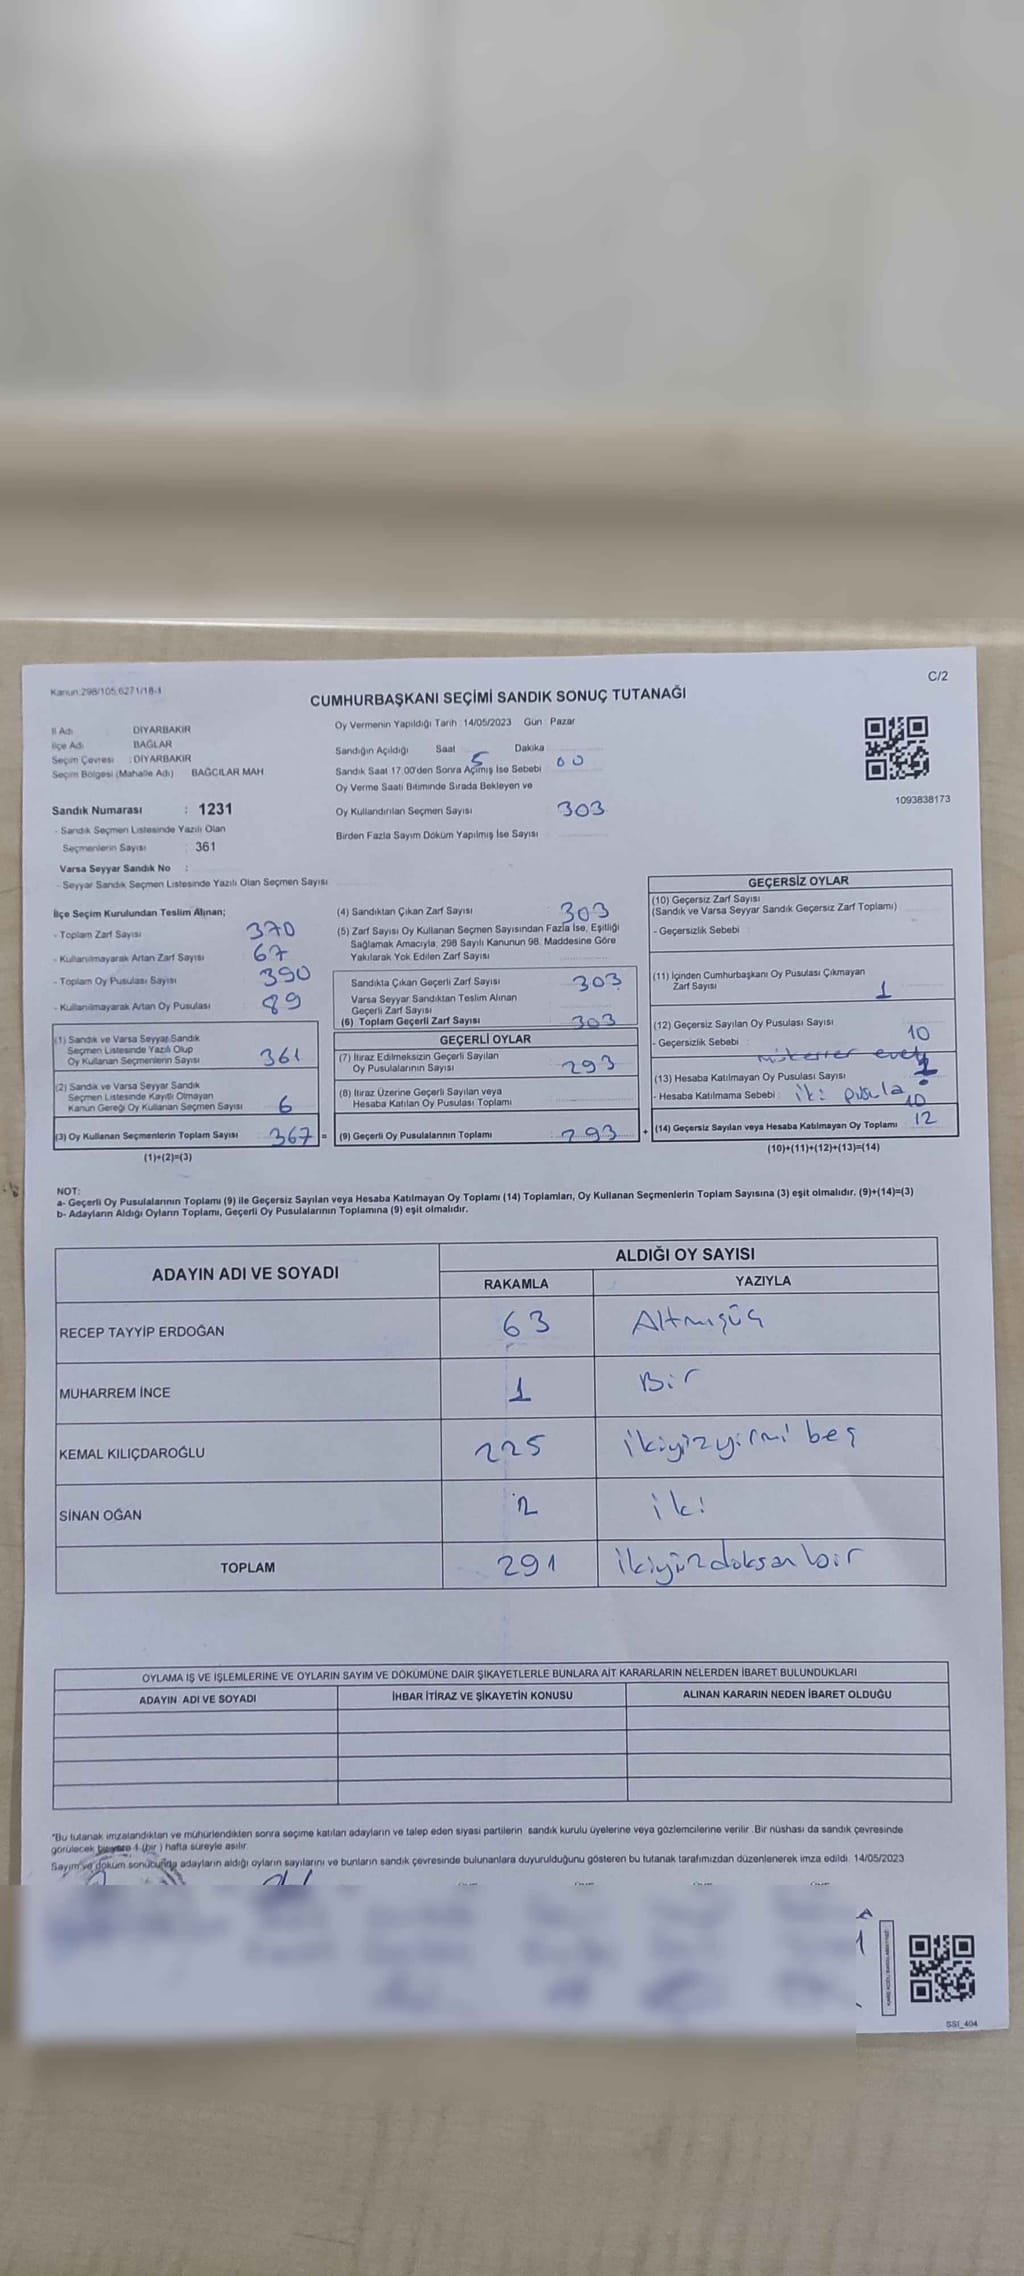 Kanun:298/105,6271/18-1
C/2
CUMHURBAŞKANI SEÇİMİ SANDIK SONUÇ TUTANAĞI
İl Adı DİYARBAKIR
İlçe Adı BAĞLAR
Seçim Çevresi : DİYARBAKIR
Seçim Bölgesi (Mahalle Adı) BAĞCILAR MAH
Sandık Numarası : 1231
- Sandık Seçmen Listesinde Yazılı Olan
Seçmenlerin Sayısı : 361
Varsa Seyyar Sandık No :
- Seyyar Sandık Seçmen Listesinde Yazılı Olan Seçmen Sayısı
Oy Vermenin Yapıldığı Tarih : 14/05/2023 Gün : Pazar
Sandığın Açıldığı Saat 5 Dakika 00
Sandık Saat 17.00'den Sonra Açımış İse Sebebi
Oy Verme Saati Bitiminde Sırada Bekleyen ve
Oy Kullandırılan Seçmen Sayısı 303
Birden Fazla Sayım Döküm Yapılmış İse Sayısı
1093838173
İlçe Seçim Kurulundan Teslim Alınan;
- Toplam Zarf Sayısı 370
- Kullanılmayarak Artan Zarf Sayısı 67
- Toplam Oy Pusulası Sayısı 390
- Kullanılmayarak Artan Oy Pusulası 89
(1) Sandık ve Varsa Seyyar Sandık
Seçmen Listesinde Yazılı Olup
Oy Kullanan Seçmenlerin Sayısı 361
(2) Sandık ve Varsa Seyyar Sandık
Seçmen Listesinde Kayıtlı Olmayan
Kanun Gereği Oy Kullanan Seçmen Sayısı 6
(3) Oy Kullanan Seçmenlerin Toplam Sayısı 367 =
(1)+(2)=(3)
(4) Sandıktan Çıkan Zarf Sayısı 303
(5) Zarf Sayısı Oy Kullanan Seçmen Sayısından Fazla İse, Eşitliği
Sağlamak Amacıyla, 298 Sayılı Kanunun 98. Maddesine Göre
Yakılarak Yok Edilen Zarf Sayısı
Sandıkta Çıkan Geçerli Zarf Sayısı 303
Varsa Seyyar Sandıktan Teslim Alınan
Geçerli Zarf Sayısı
(6) Toplam Geçerli Zarf Sayısı 303
GEÇERLİ OYLAR
(7) İtiraz Edilmeksizin Geçerli Sayılan
Oy Pusulalarının Sayısı 293
(8) İtiraz Üzerine Geçerli Sayılan veya
Hesaba Katılan Oy Pusulası Toplamı
(9) Geçerli Oy Pusulalarının Toplamı : 293 +
GEÇERSİZ OYLAR
(10) Geçersiz Zarf Sayısı
(Sandık ve Varsa Seyyar Sandık Geçersiz Zarf Toplamı)
- Geçersizlik Sebebi
(11) İçinden Cumhurbaşkanı Oy Pusulası Çıkmayan
Zarf Sayısı 1
(12) Geçersiz Sayılan Oy Pusulası Sayısı 10
- Geçersizlik Sebebi : mükerrer evet
(13) Hesaba Katılmayan Oy Pusulası Sayısı
- Hesaba Katılmama Sebebi : iki pusula 10
(14) Geçersiz Sayılan veya Hesaba Katılmayan Oy Toplamı 12
(10)+(11)+(12)+(13)=(14)
NOT:
a- Geçerli Oy Pusulalarının Toplamı (9) ile Geçersiz Sayılan veya Hesaba Katılmayan Oy Toplamı (14) Toplamları, Oy Kullanan Seçmenlerin Toplam Sayısına (3) eşit olmalıdır. (9)+(14)=(3)
b- Adayların Aldığı Oyların Toplamı, Geçerli Oy Pusulalarının Toplamına (9) eşit olmalıdır.
ADAYIN ADI VE SOYADI ALDIĞI OY SAYISI
RAKAMLA YAZIYLA
RECEP TAYYİP ERDOĞAN 63 Altmışüç
MUHARREM İNCE 1 Bir
KEMAL KILIÇDAROĞLU 225 ikiyüzyirmi beş
SİNAN OĞAN 2 iki
TOPLAM 291 ikiyüzdoksan bir
OYLAMA İŞ VE İŞLEMLERİNE VE OYLARIN SAYIM VE DÖKÜMÜNE DAİR ŞİKAYETLERLE BUNLARA AİT KARARLARIN NELERDEN İBARET BULUNDUKLARI
ADAYIN ADI VE SOYADI İHBAR İTİRAZ VE ŞİKAYETİN KONUSU ALINAN KARARIN NEDEN İBARET OLDUĞU
*Bu tutanak imzalandıktan ve mühürlendikten sonra seçime katılan adayların ve talep eden siyasi partilerin sandık kurulu üyelerine veya gözlemcilerine verilir. Bir nüshası da sandık çevresinde
görülecek bir yere 1 (bir) hafta süreyle asılır.
Sayım ve döküm sonucunda adayların aldığı oyların sayılarını ve bunların sandık çevresinde bulunanlara duyurulduğunu gösteren bu tutanak tarafımızdan düzenlenerek imza edildi. 14/05/2023
SSI_404